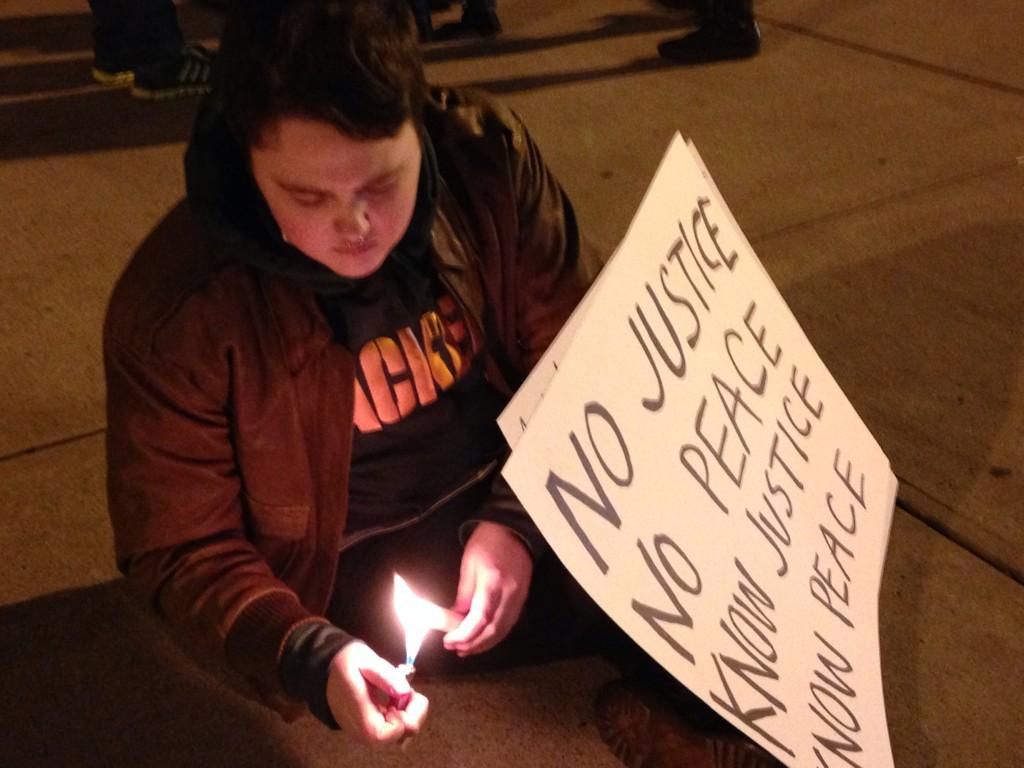 NO JUSTICE
NO PEACE
KNOW JUSTICE
KNOW PEACE